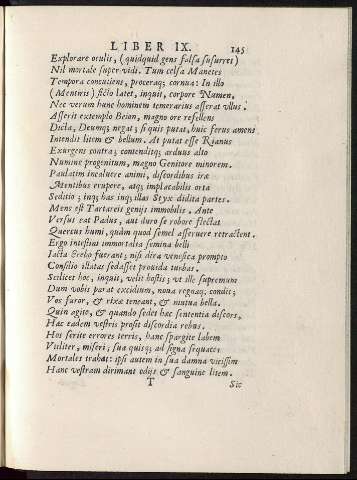 LIBER IX. 145
Explorare oculis, (quidquid gens falsa susurret)
Nil mortale super vidi. Tum celsa Manetes
Tempora concutiens, proceraq; cornua: In illo
(Mentiris) ficto latet, inquit, corpore Numen,
Nec verum hunc hominem temerarius asserat vllus.
Asserit extemplo Beion, magno ore refellens
Dicta, Deumq; negat; si quis putat, huic ferus amens
Intendit litem & bellum. At putat esse Rianus
Exurgens contra; contenditq; arduus alto
Numine progenitum, magno Genitore minorem.
Paulatim incaluere animi, discordibus iræ
Mentibus erupere, atq; implacabilis orta
Seditio; inq; has inq; illas Styx didita partes.
Mens est Tartareis genijs immobilis. Ante
Versus eat Padus, aut duro se robore flectat
Quercus humi, quàm quod semel asseruere retractent.
Ergo intestini immortalia semina belli
Iacta Erebo fuerant; nisi dira venefica prompto
Consilio illatas sedasset prouida turbas.
Scilicet hoc, inquit, velit hostis; vt ille supremum
Dum vobis parat excidium, noua regnaq; condit;
Vos furor, & rixæ teneant, & mutua bella.
Quin agite, & quando sedet hæc sententia discors,
Hac eadem vestris prosit discordia rebus.
Hos serite errores terris, hanc spargite labem
Vtiliter; miseri, sua quisq; ad signa sequaces
Mortales trahat: ipsi autem in sua damna vicissim
Hanc vestram dirimant odijs & sanguine litem.
T Sic